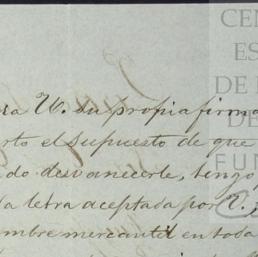 CEN
ES
DE
DE
FUN
ra V. su propia firma
rto el supuesto de que
do desvanecerle, tengo
la letra aceptada por V.
ombre mercantil en toda